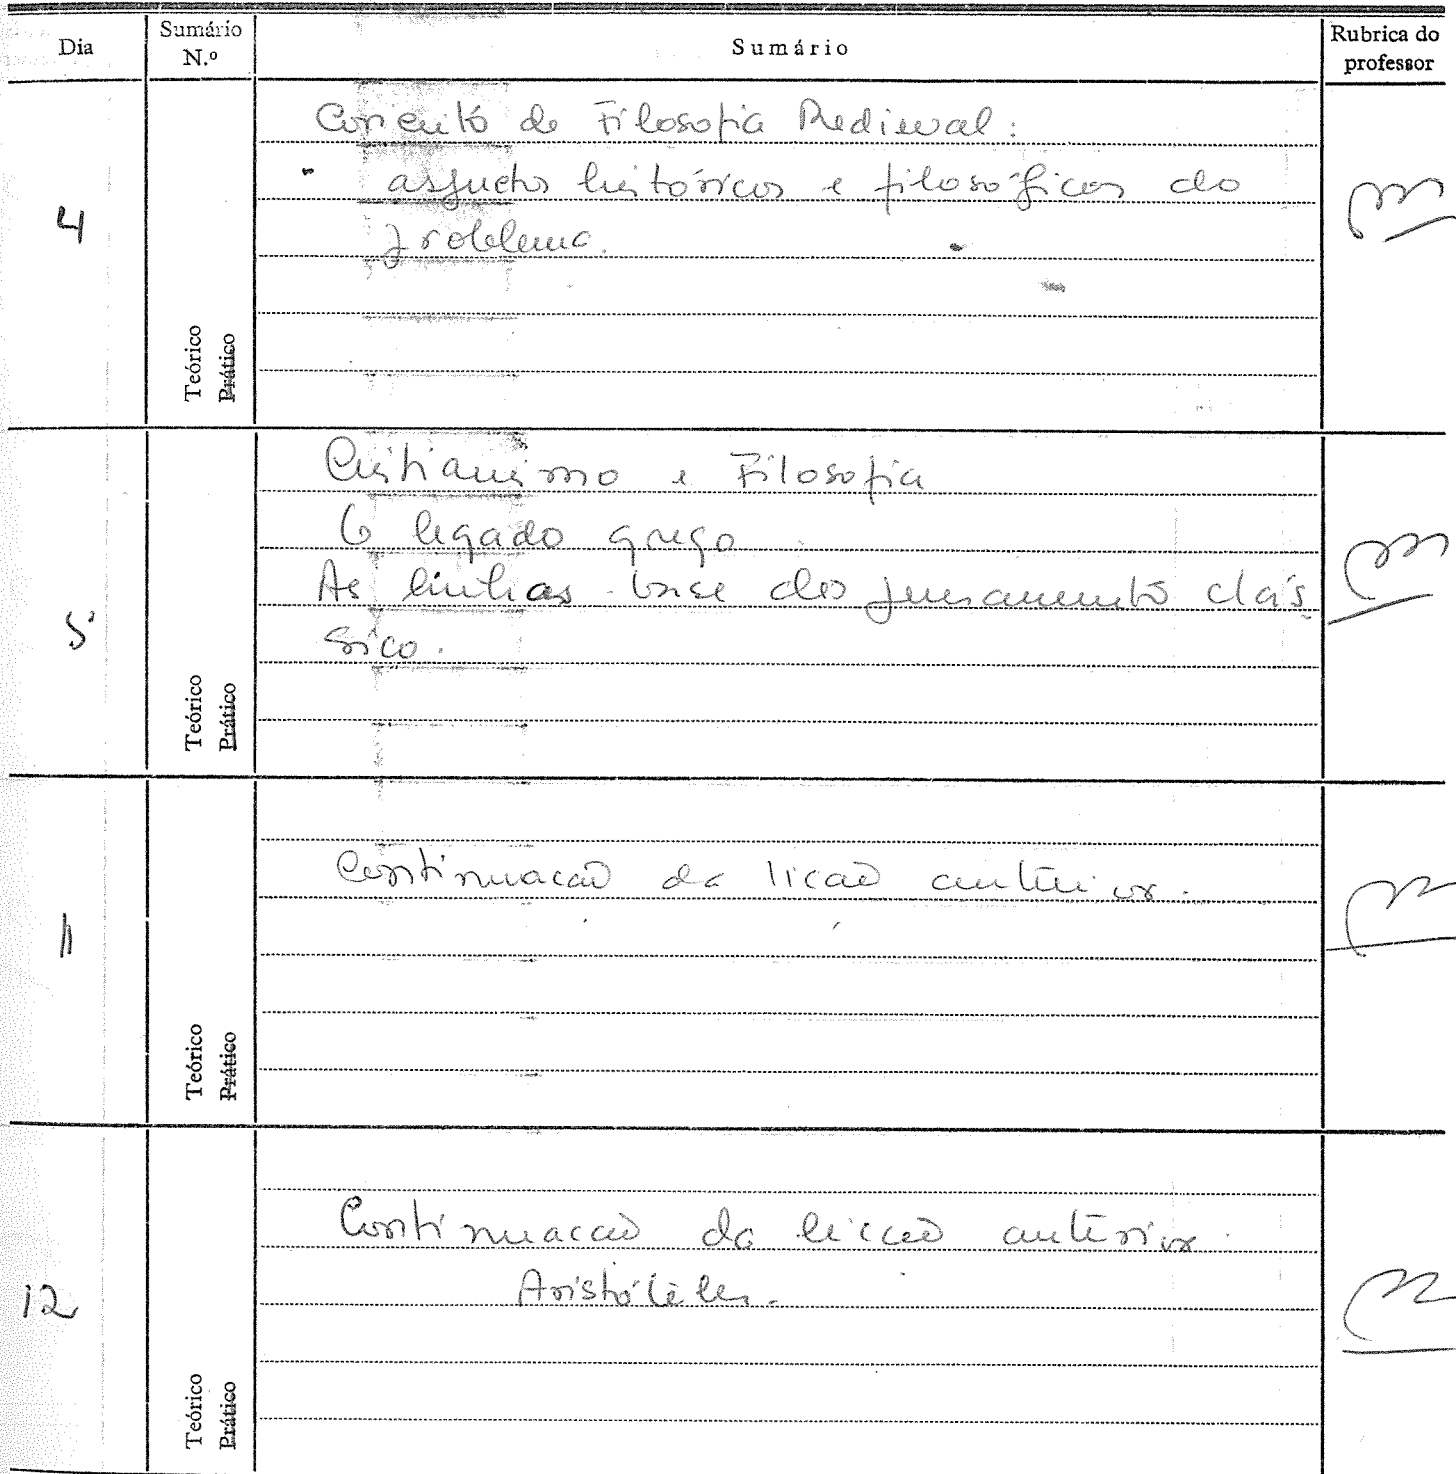 Dia
Sumário N.º
Sumário
Rubrica do professor
4
Teórico
Prático
Conceito de Filosofia Medieval:
aspectos históricos e filosóficos do
problema.
5
Teórico
Prático
Cristianismo e Filosofia
O legado grego
As linhas base do pensamento clás
sico.
11
Teórico
Prático
Continuação da lição anterior.
12
Teórico
Prático
Continuação da lição anterior.
Aristóteles.